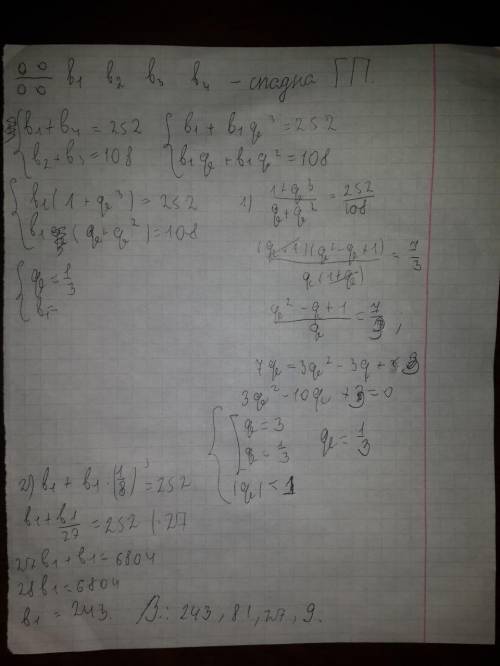 b₁ b₂ b₃ b₄ – спадна ГП.
{ b₁ + b₄ = 252 { b₁ + b₁q³ = 252
{ b₂ + b₃ = 108 { b₁q + b₁q² = 108
{ b₁(1 + q³) = 252 1) (1+q³)/(q+q²) = 252/108
{ b₁(q + q²) = 108
(q+1)(q²-q+1)/(q(1+q)) = 7/3
{ q = 1/3
{ b₁ =
(q² - q + 1)/q = 7/3,
7q = 3q² - 3q + 3
3q² - 10q + 3 = 0
{ [ q = 3
[ q = 1/3 q = 1/3
|q| < 1
2) b₁ + b₁ · (1/8)³ = 252
b₁ + b₁/27 = 252 | · 27
27b₁ + b₁ = 6804
28b₁ = 6804
b₁ = 243. В.: 243, 81, 27, 9.